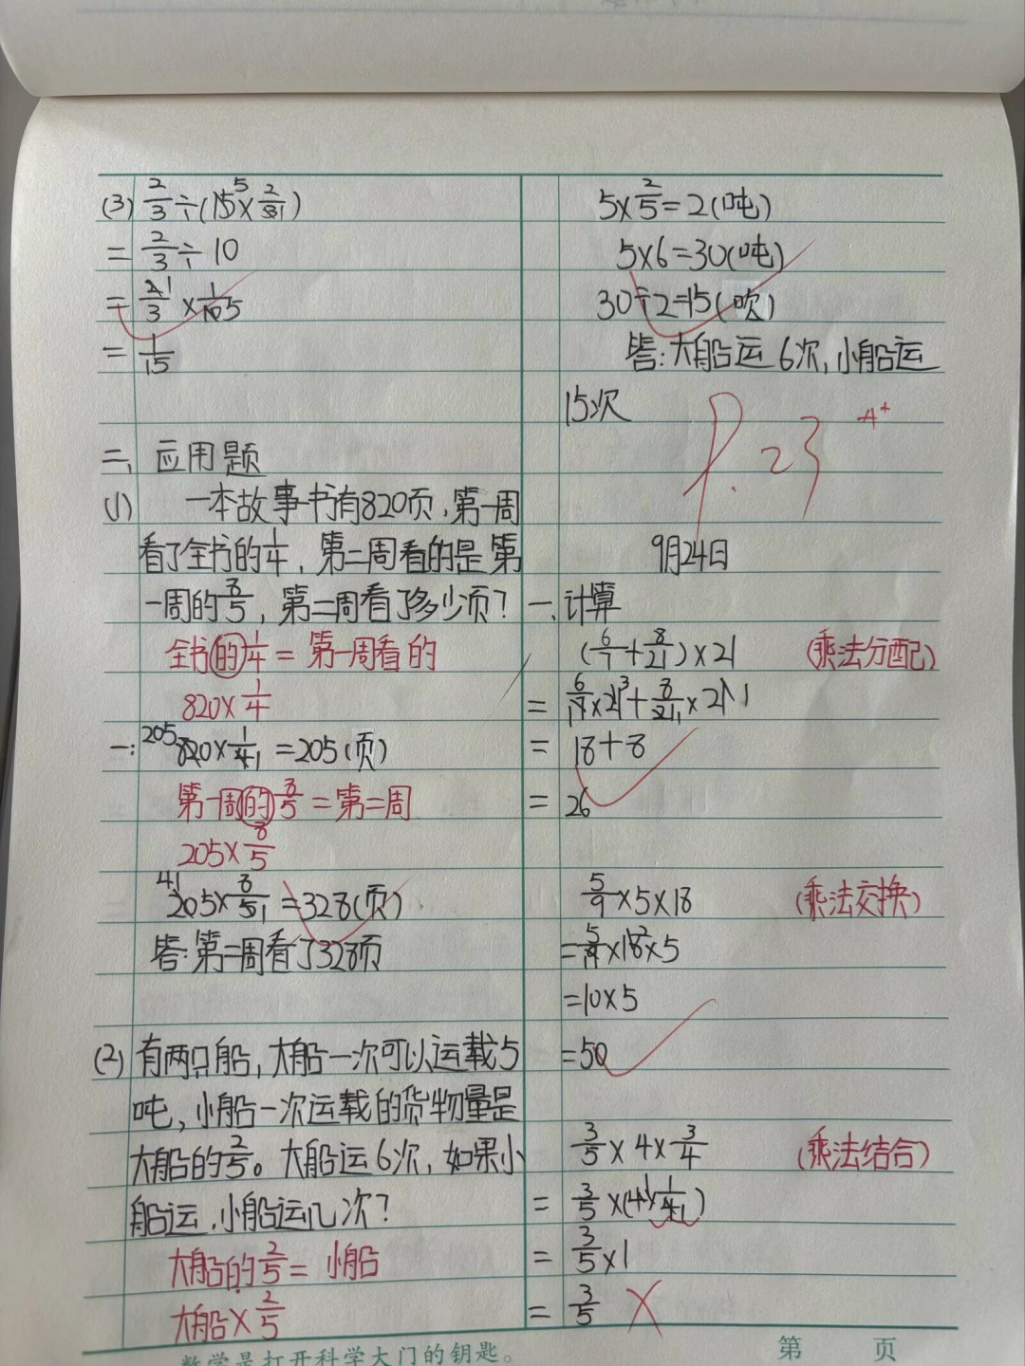 (3) 2/3÷(15×2/3)
=2/3÷10
=2/3×1/10
=1/15
二、应用题
(1) 一本故事书有820页,第一周
看了全书的1/4,第二周看的是第
一周的8/5,第二周看了多少页?
全书的1/4=第一周看的
820×1/4
一:820×1/4=205(页)
第一周的8/5=第二周
205×8/5
205×8/5=328(页)
答:第二周看了328页
(2) 有两只船,大船一次可以运载5
吨,小船一次运载的货物量是
大船的2/5。大船运6次,如果小
船运,小船运几次?
大船的2/5=小船
大船×2/5
5×2/5=2(吨)
5×6=30(吨)
30÷2=15(次)
答:大船运6次,小船运
15次
A+
9月24日
一、计算
(6/7+8/21)×21 (乘法分配)
=6/7×21+8/21×21
=18+8
=26
5/9×5×18 (乘法交换)
=5/9×18×5
=10×5
=50
3/5×4×3/4 (乘法结合)
=3/5×(4×1/4)
=3/5×1
=3/5
数学是打开科学大门的钥匙。
第 页